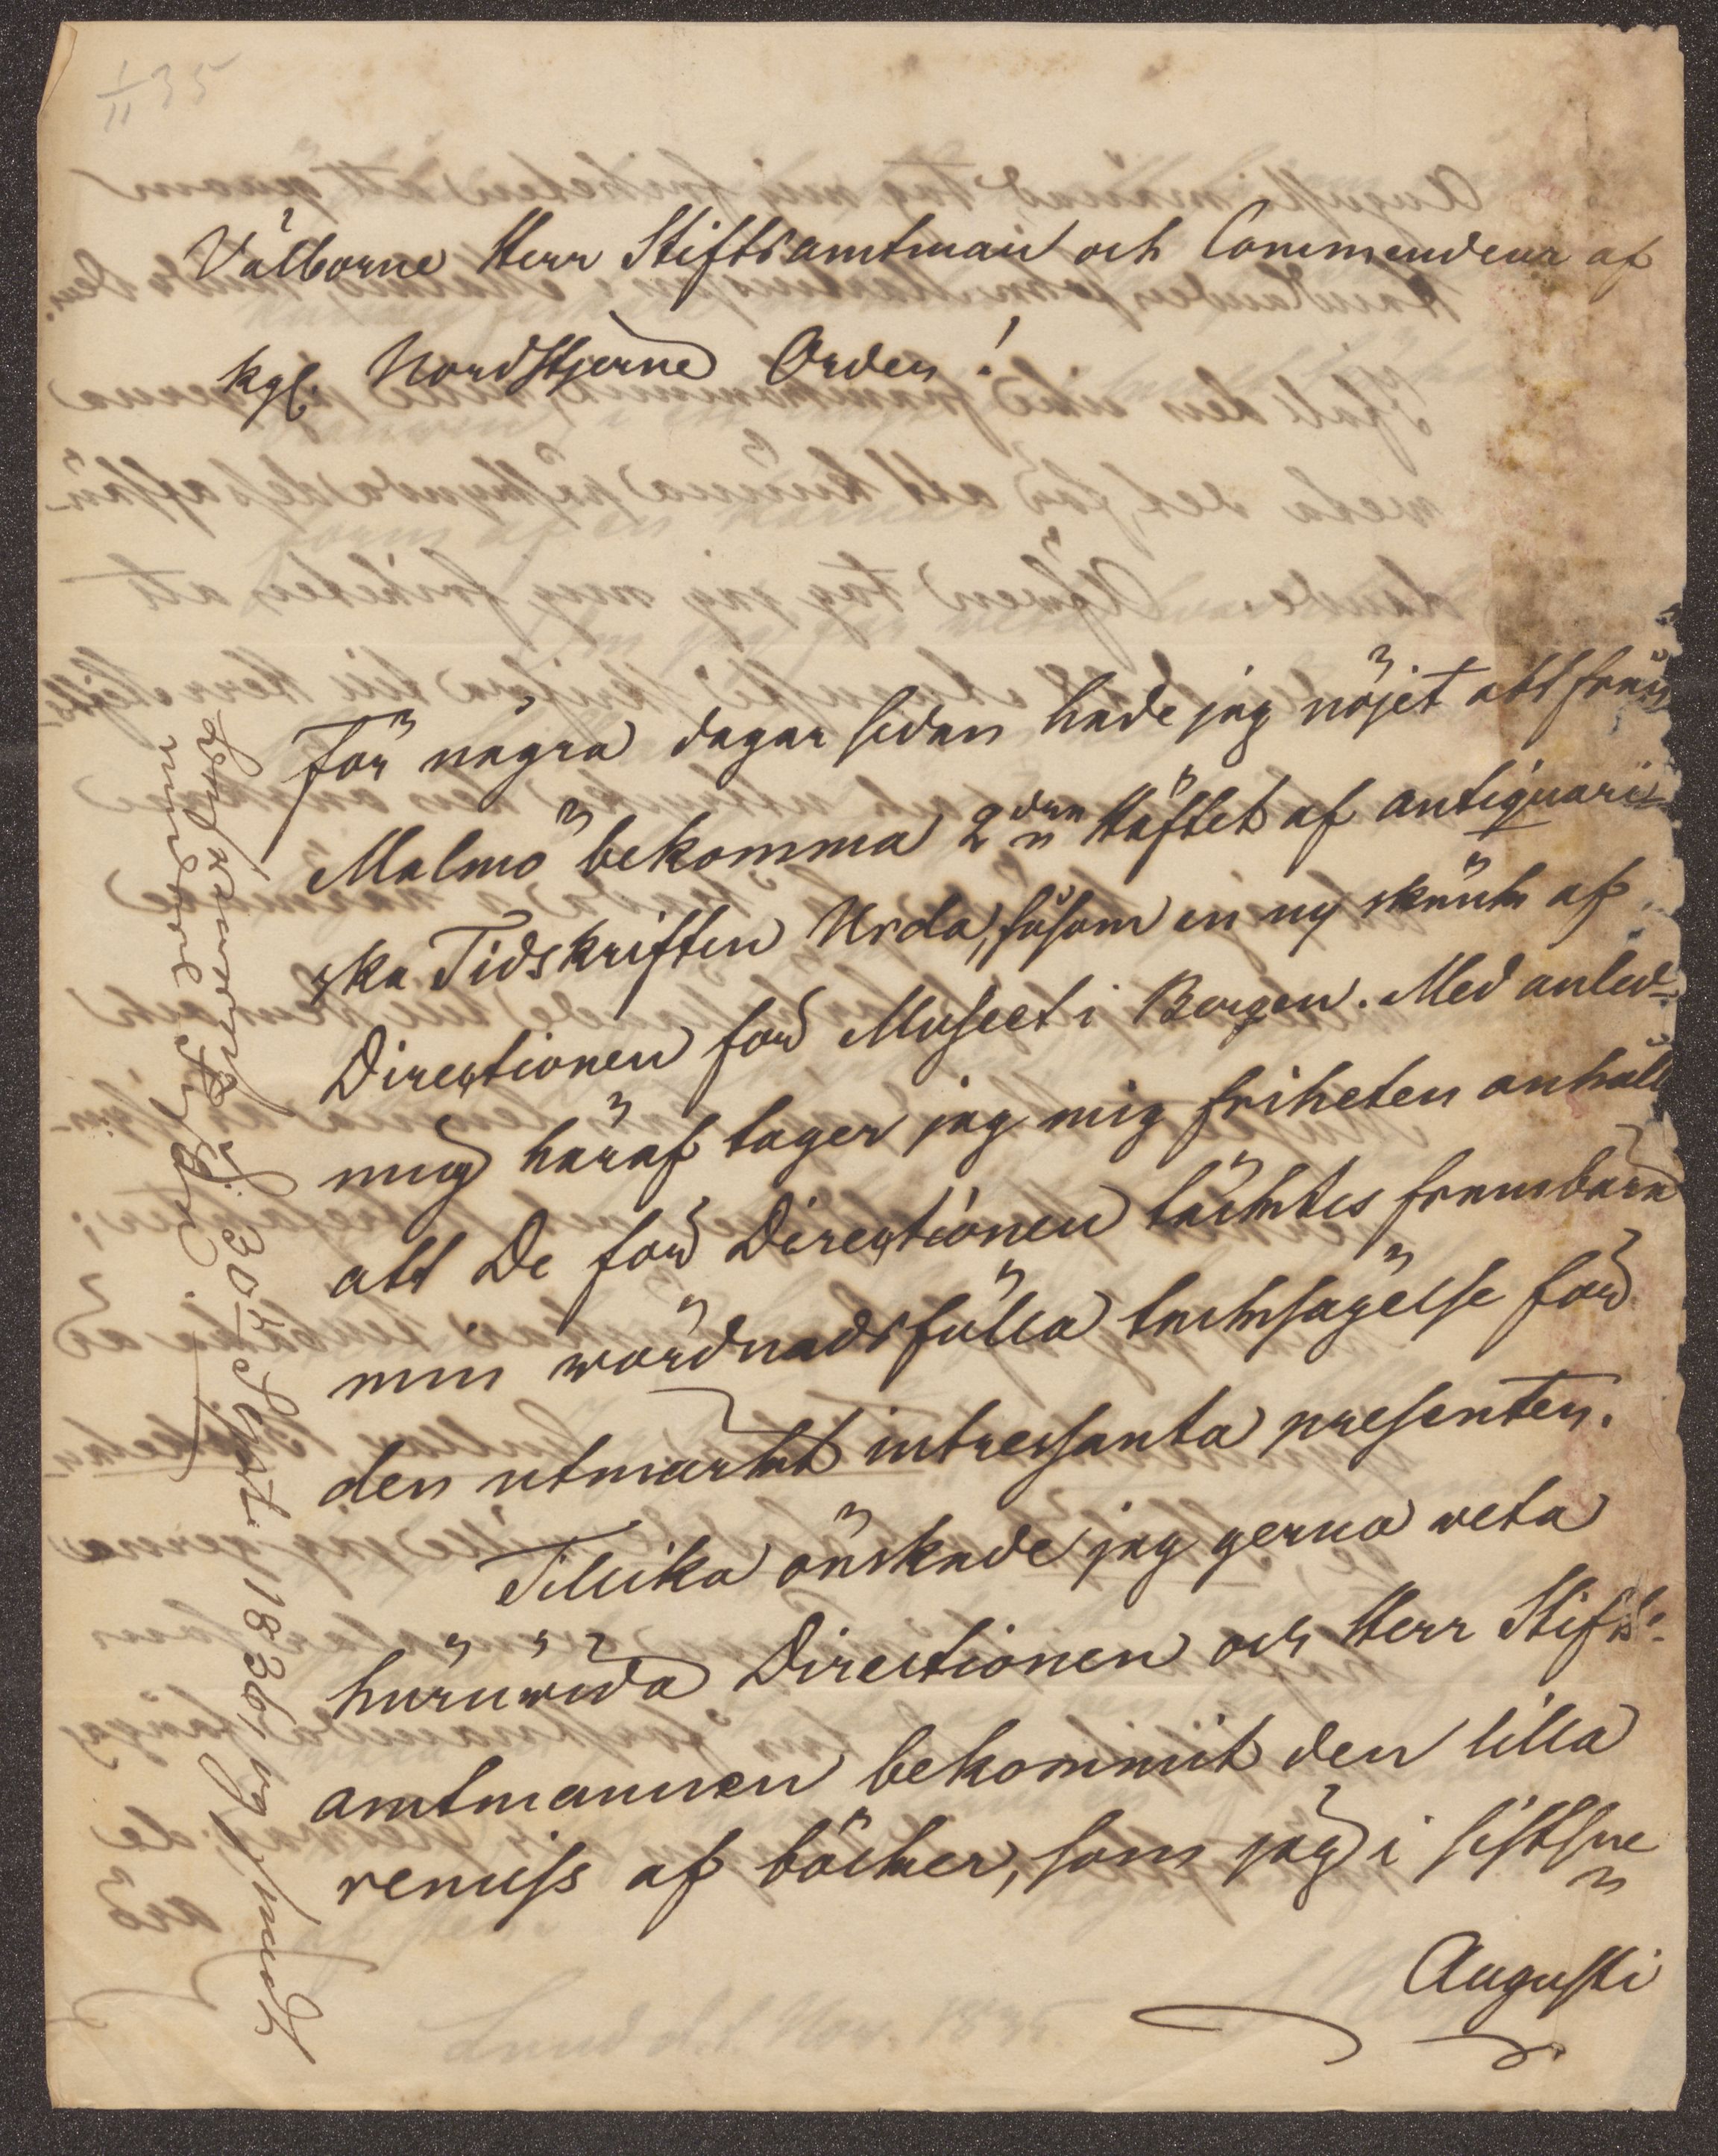 1/11 35
Välborne Herr Stiftsamtman och Commendeur af
kgl. Nordstjerne Orden!
För några dagar sedan hade jag nöjet att från
Malmö bekomma 2dra Häftet af antiquari-
ska Tidskriften Urda, såsom en ny skänk af
Directionen for Museet i Bergen. Med anled-
ning häraf tager jag mig friheten anhålla
att De for Directionen täcktes frambära
min wördnadsfulla tacksägelse for
den utmärkt intressanta presenten.
Tillika önskade jag gerna weta
huruwida Directionen och Herr Stifts-
amtmannen bekommit den lilla
remiss af böcker, som jag i sistsne
Augusti
30 Sept. 1836